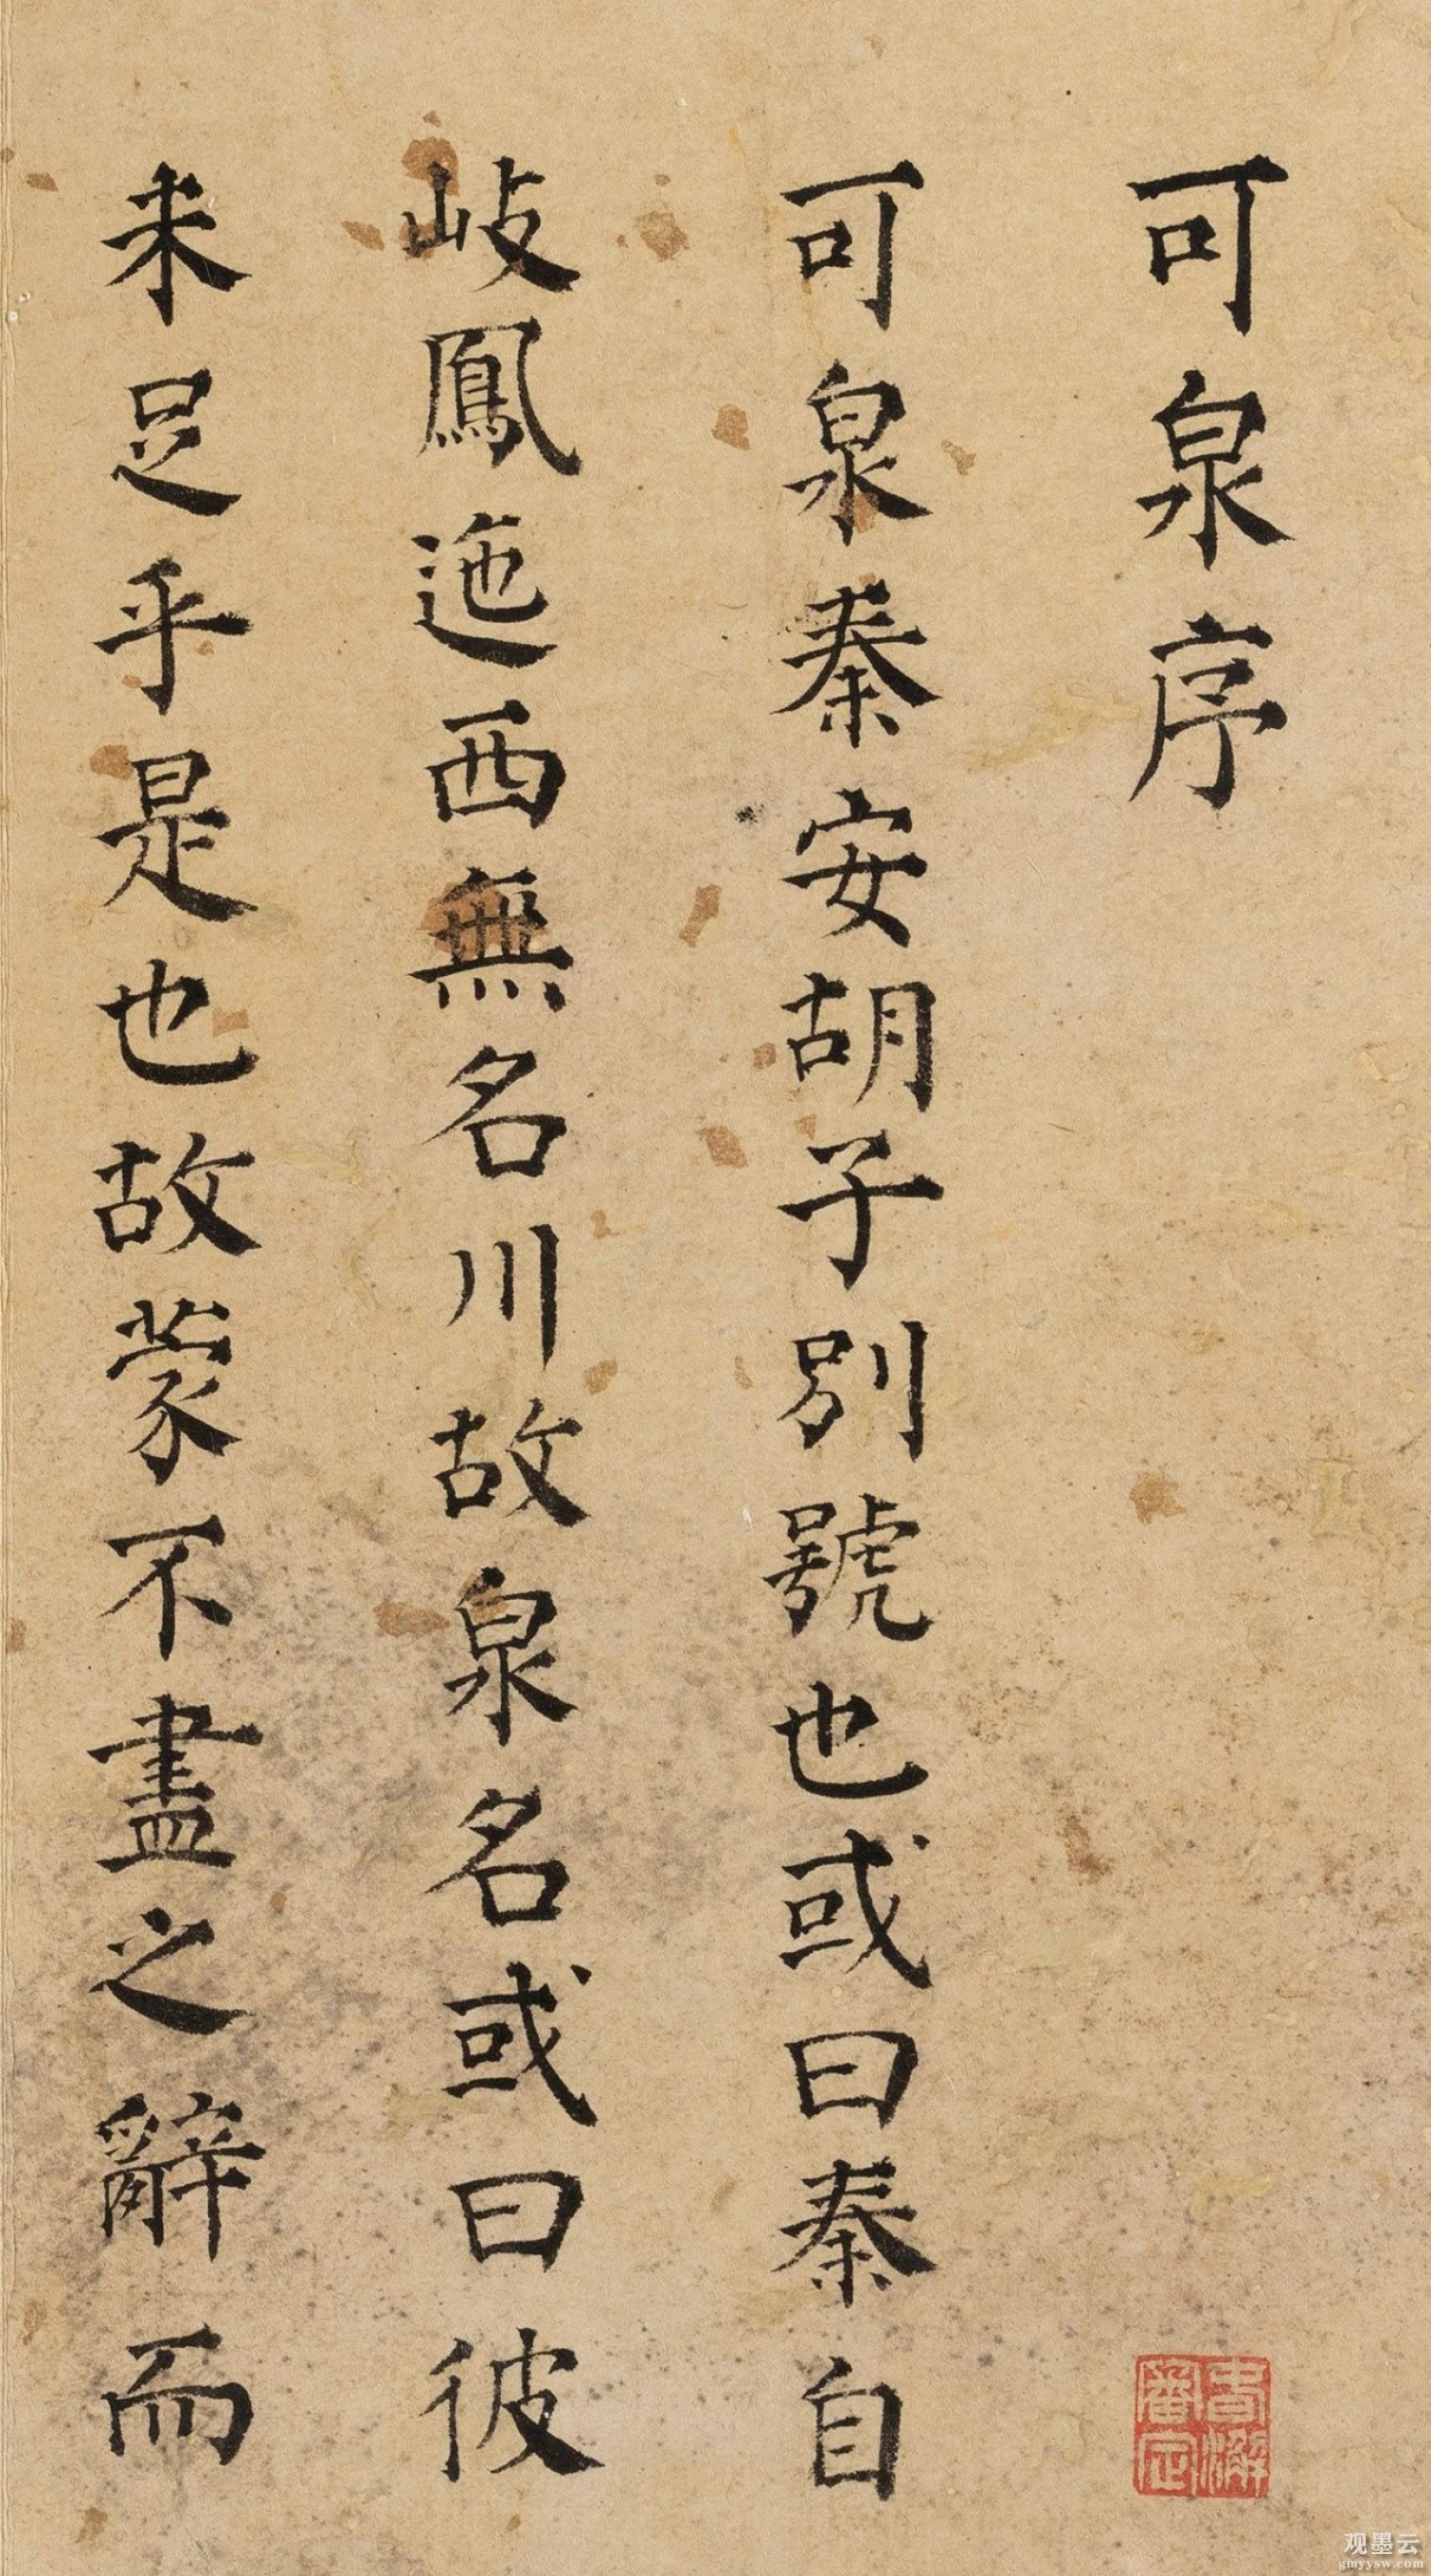 可泉序
可泉秦安胡子別號也或曰秦自
岐鳳迤西無名川故泉名或曰彼
未足乎是也故蒙不盡之辭而
書瀚
審定
观墨云
gmyysw.com